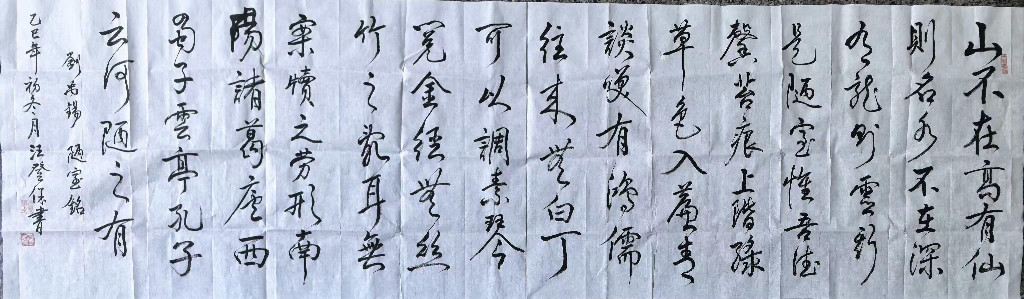 山不在高有仙
則名水不在深
有龍則靈斯
是陋室惟吾德
馨苔痕上階綠
草色入簾青
談笑有鴻儒
往來無白丁
可以調素琴
閱金經無絲
竹之亂耳無
案牘之勞形南
陽諸葛廬西
蜀子雲亭孔子
云何陋之有
劉禹錫 陋室銘
乙巳年初冬月汪登保書